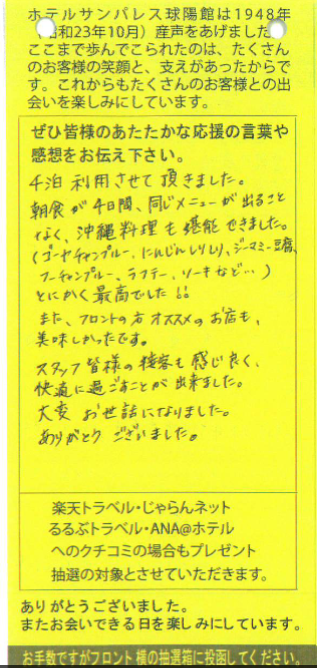 ホテルサンパレス球陽館は1948年
昭和23年10月）産声をあげました
ここまで歩んでこられたのは、たくさん
のお客様の笑顔と、支えがあったからで
す。これからもたくさんのお客様との出
会いを楽しみにしています。
ぜひ皆様のあたたかな応援の言葉や
感想をお伝え下さい。
4泊 利用させて頂きました。
朝食が4日間、同じメニューが出ること
なく、沖縄料理も堪能できました。
(ゴーヤチャンプルー、にんじんしりしり、ジーマミー豆腐、
フーチャンプルー、ラフテー、ソーキなど…)
とにかく最高でした!!
また、フロントの方オススメのお店も、
美味しかったです。
スタッフ皆様の接客も感じ良く、
快適に過ごすことが出来ました。
大変 お世話になりました。
ありがとう ございました。
楽天トラベル・じゃらんネット
るるぶトラベル・ANA@ホテル
へのクチコミの場合もプレゼント
抽選の対象とさせていただきます。
ありがとうございました。
またお会いできる日を楽しみにしています。
お手数ですがフロント横の抽選箱に投函してください。